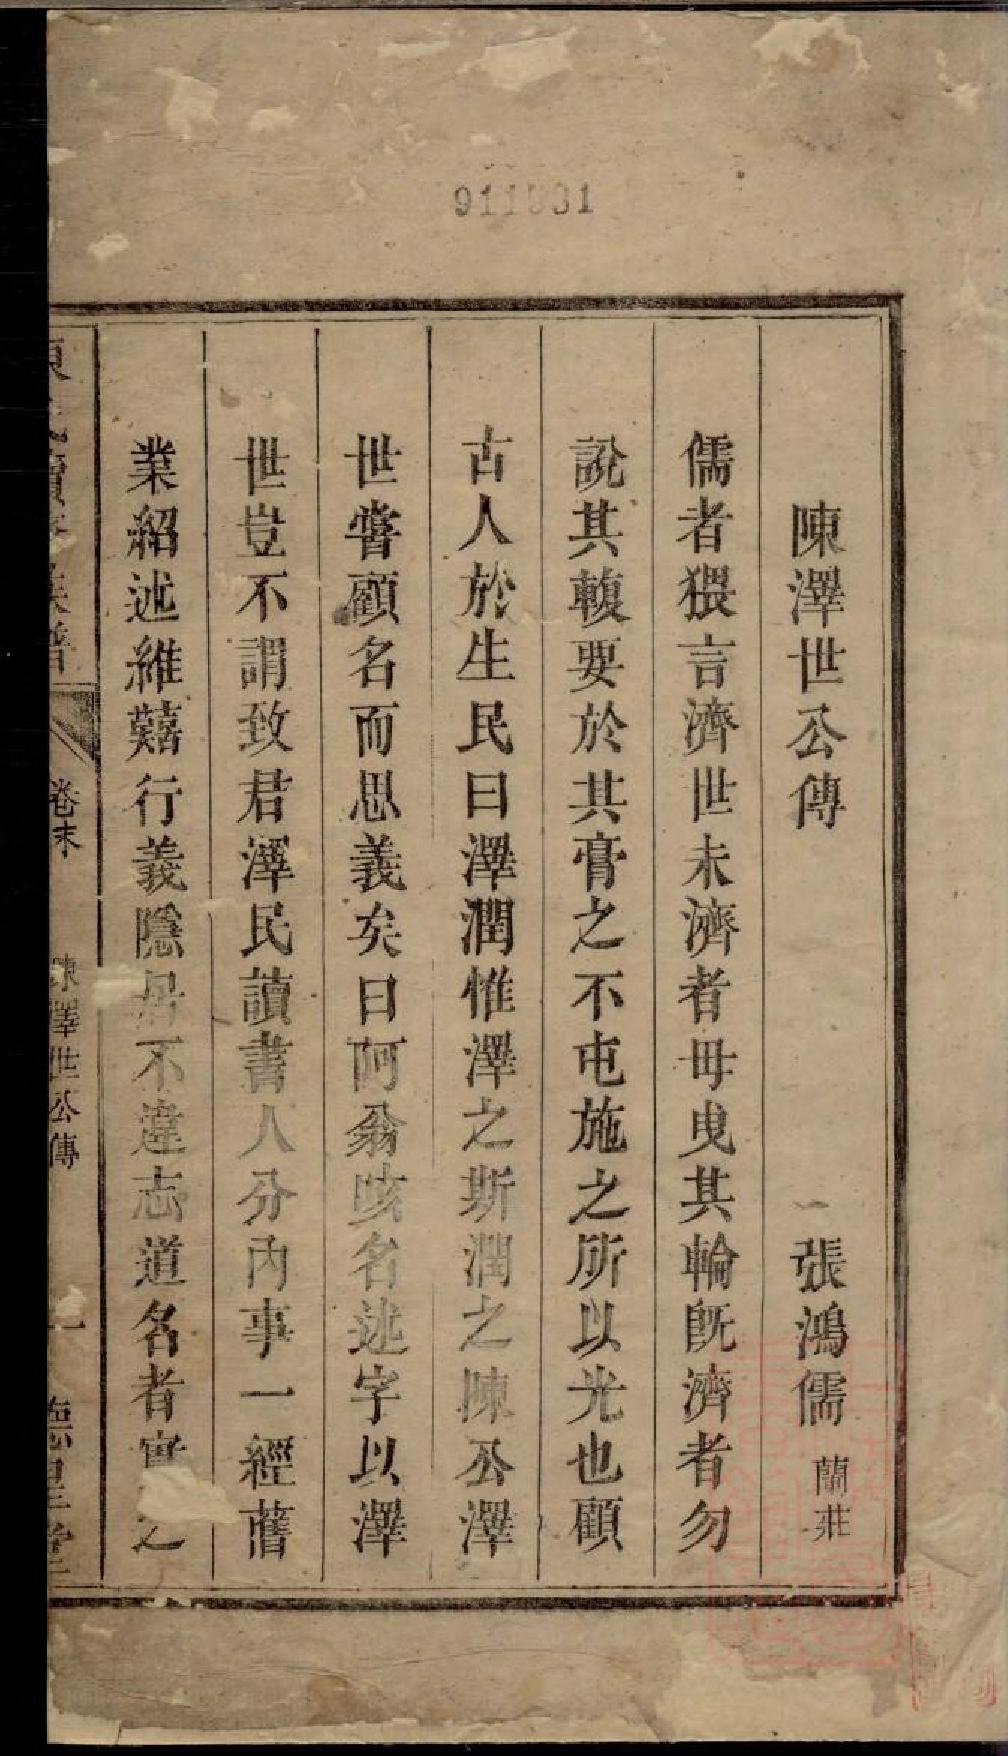 911031
陳澤世公傳 張鴻儒 蘭莊
儒者猥言濟世未濟者毋曳其輪旣濟者勿
說其輹要於其膏之不屯施之所以光也顧
古人於生民曰澤潤惟澤之斯潤之陳公澤
世嘗顧名而思義矣曰阿翁咳名述字以澤
世豈不謂致君澤民讀書人分內事一經舊
業紹述維囏行義隱居不違志道名者實之
卷末
陳澤世公傳
一
德星堂